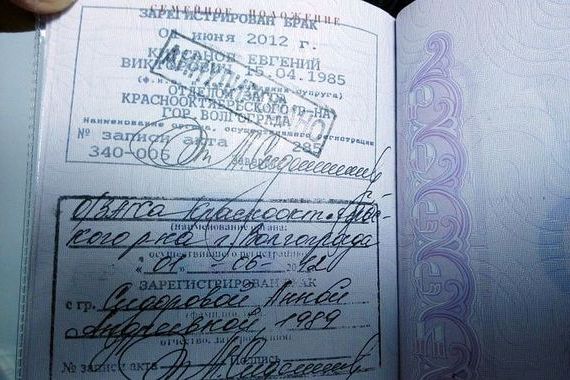 СЕМЕЙНОЕ ПОЛОЖЕНИЕ
ЗАРЕГИСТРИРОВАН БРАК
июня 2012 г.
ЕВГЕНИЙ
15.04.1985
супруга)
КРАСНООКТЯБРЬСКОГО Р-НА
ГОР. ВОЛГОГРАДА
Наименование органа, осуществившего регистрацию
№ записи акта 285
340-006
ОЗАГСа Красноокт.
кого р-на г. Волгограда
(наименование органа,
осуществившего регистрацию)
ЗАРЕГИСТРИРОВАН БРАК
с гр. Сидоровой Анной
Андреевной, 1989
отчество, дата рождения
№ записи акта Подпись